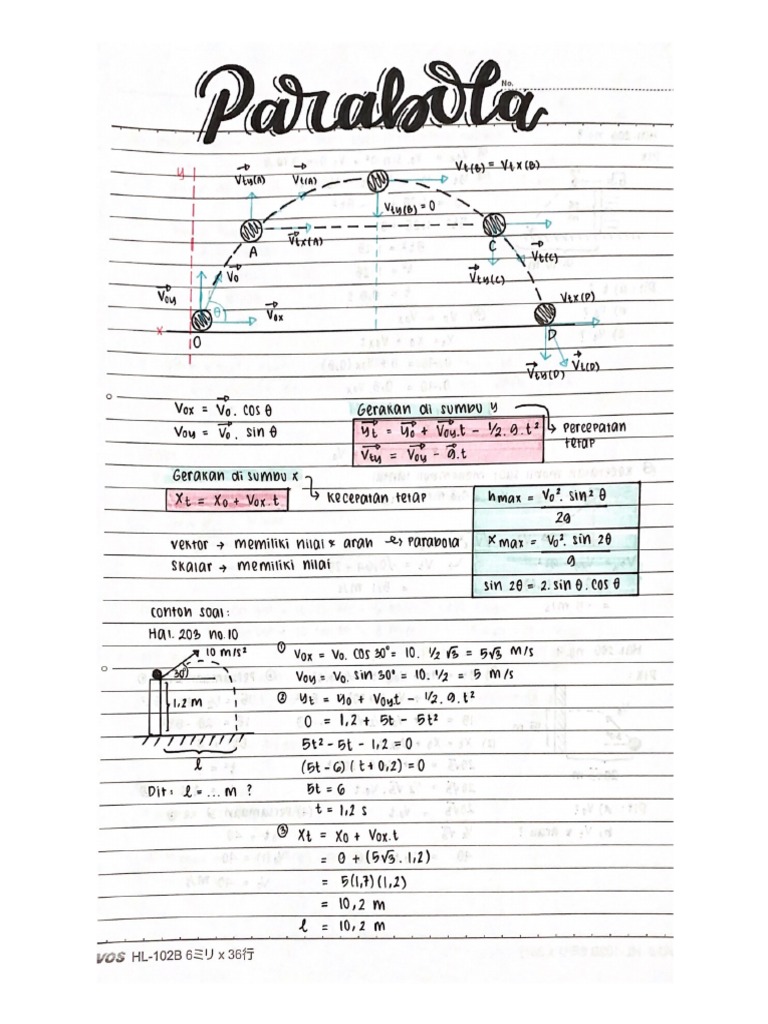 No.
Parabola
y
Vty(A)
Vt(A)
Vt(B) = Vtx(B)
Vty(B) = 0
A
Vtx(A)
C
Vt(C)
Vty(C)
Vo
Voy
θ
Vox
Vtx(D)
x
O
D
Vty(D)
Vt(D)
Vox = Vo. cos θ
Voy = Vo. sin θ
Gerakan di sumbu y
yt = yo + Voy.t - 1/2.g.t²
Vty = Voy - g.t
↳ Percepatan
tetap
Gerakan di sumbu x
Xt = Xo + Vox.t
↳ Kecepatan tetap
hmax = Vo². sin² θ
2g
x max = Vo². sin 2θ
g
sin 2θ = 2. sin θ. cos θ
vektor → memiliki nilai & arah ↪ parabola
skalar → memiliki nilai
contoh soal:
Hal. 203 no.10
10 m/s²
30°
1,2 m
l
Dit: l = ... m ?
① Vox = Vo. cos 30° = 10. 1/2 √3 = 5√3 m/s
Voy = Vo. sin 30° = 10. 1/2 = 5 m/s
② yt = yo + Voyt - 1/2.g.t²
0 = 1,2 + 5t - 5t²
5t² - 5t - 1,2 = 0
(5t-6) (t+0,2) = 0
5t = 6
t = 1,2 s
③ Xt = Xo + Vox.t
= 0 + (5√3. 1,2)
= 5(1,7)(1,2)
= 10,2 m
l = 10,2 m
VOS HL-102B 6ミリ x 36行